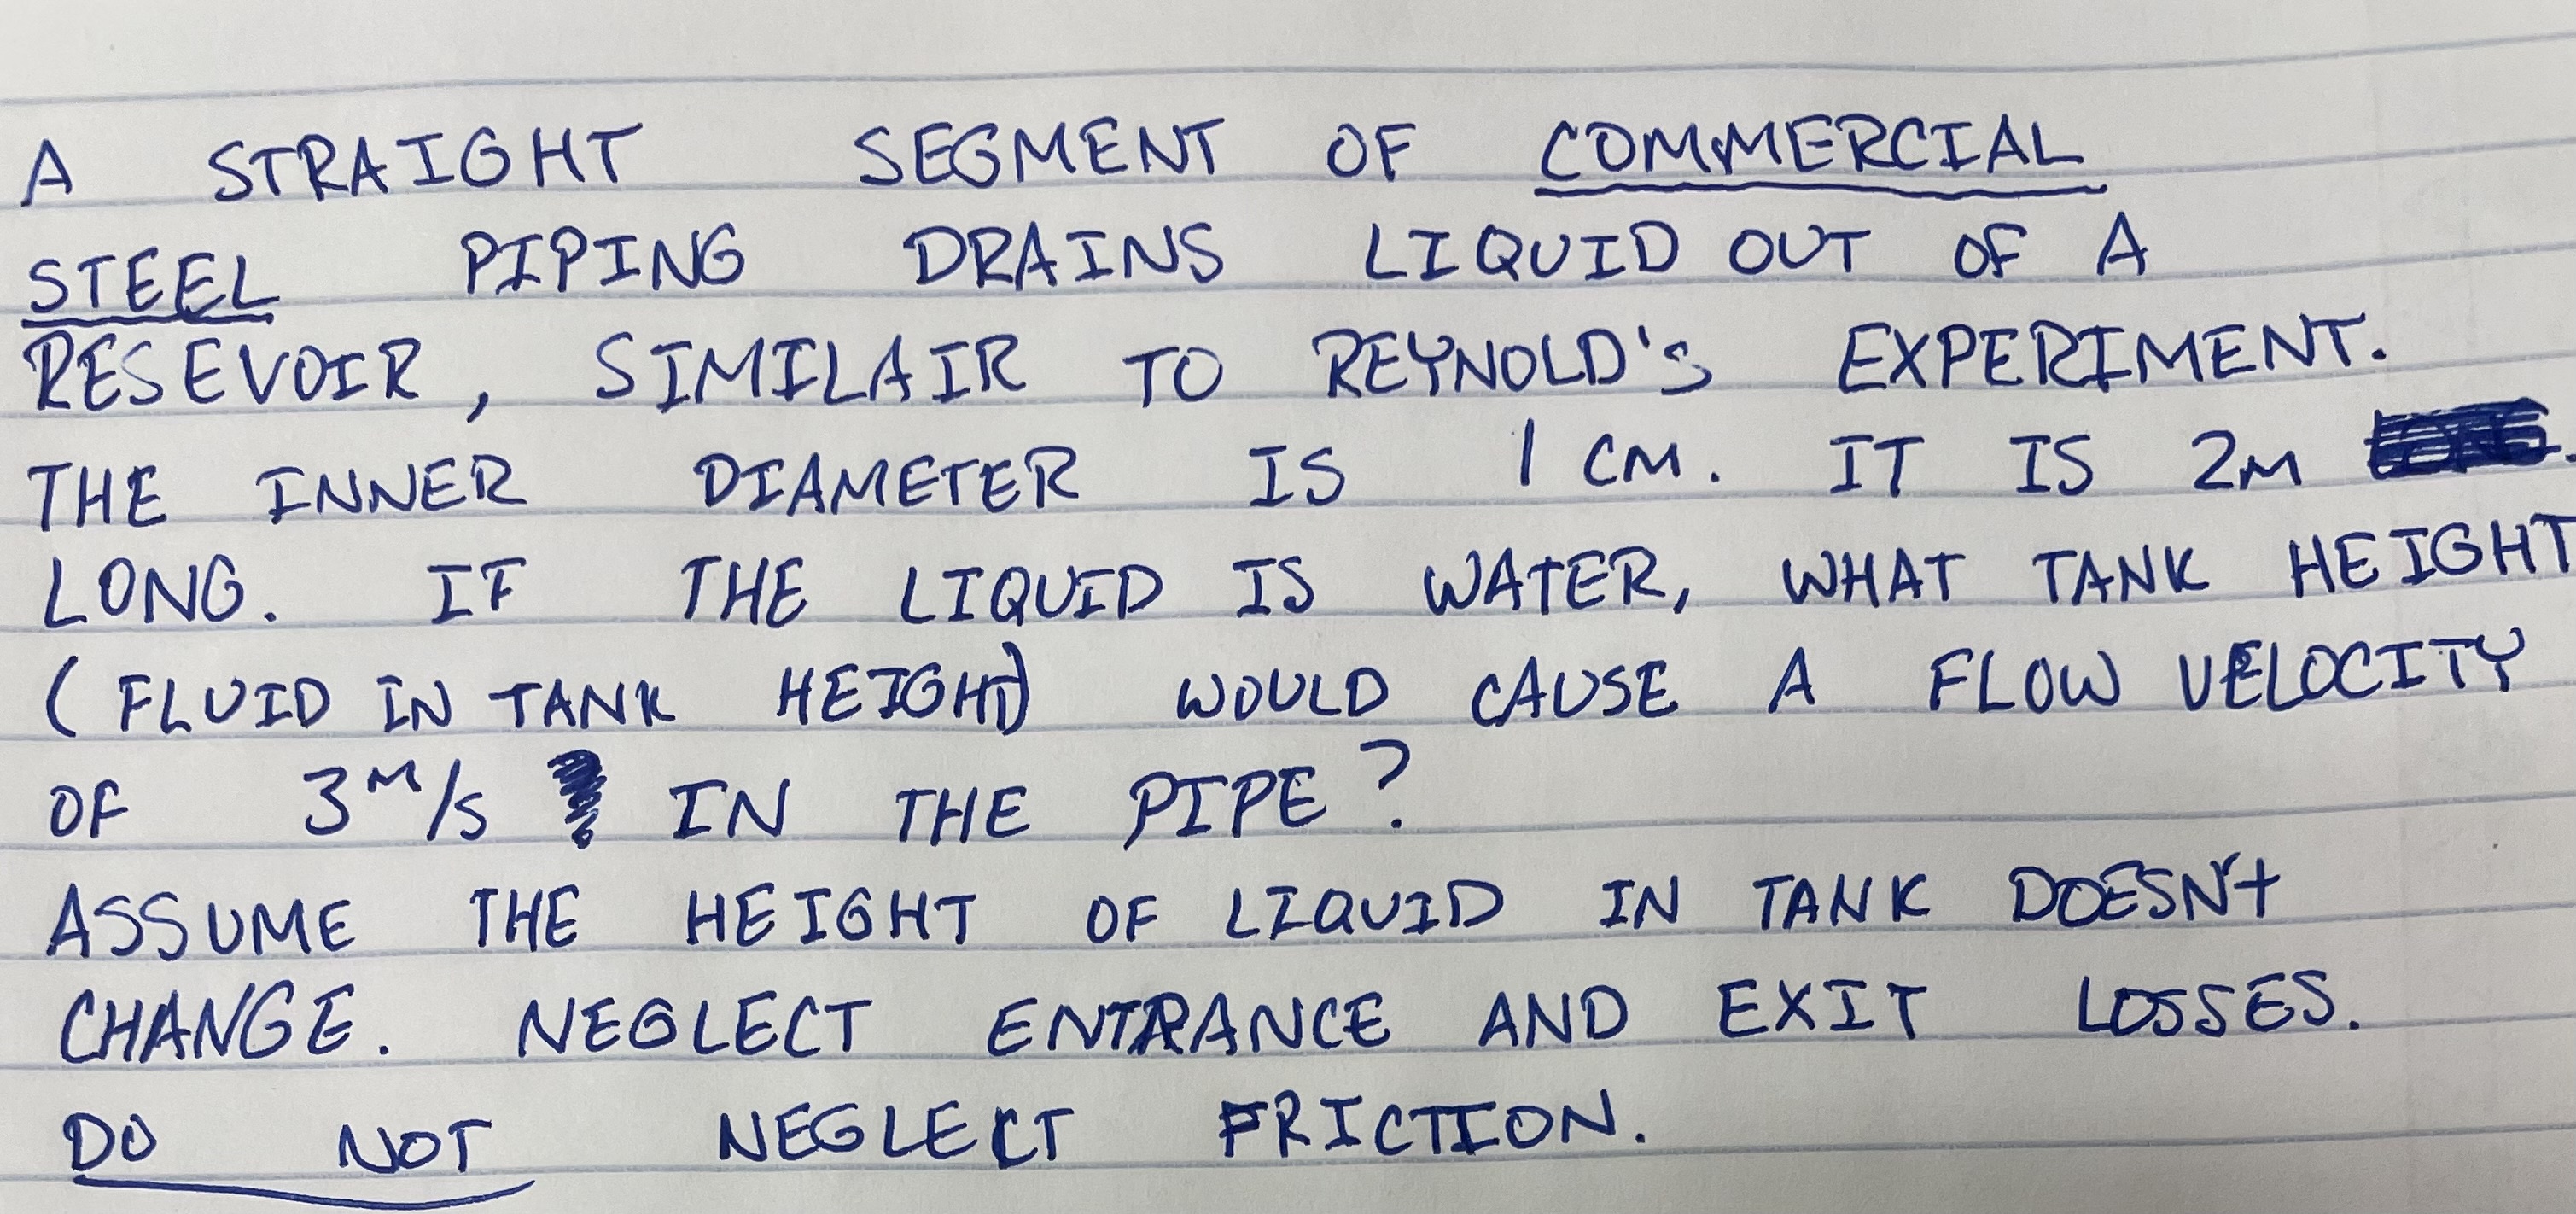 A STRAIGHT SEGMENT OF COMMERCIAL
STEEL PIPING DRAINS LIQUID OUT OF A
RESEVOIR, SIMILAIR TO REYNOLD'S EXPERIMENT.
THE INNER DIAMETER IS 1 CM. IT IS 2M
LONG. IF THE LIQUID IS WATER, WHAT TANK HEIGHT
(FLUID IN TANK HEIGHT) WOULD CAUSE A FLOW VELOCITY
OF 3 M/S IN THE PIPE?
ASSUME THE HEIGHT OF LIQUID IN TANK DOESN't
CHANGE. NEGLECT ENTRANCE AND EXIT LOSSES.
DO NOT NEGLECT FRICTION.